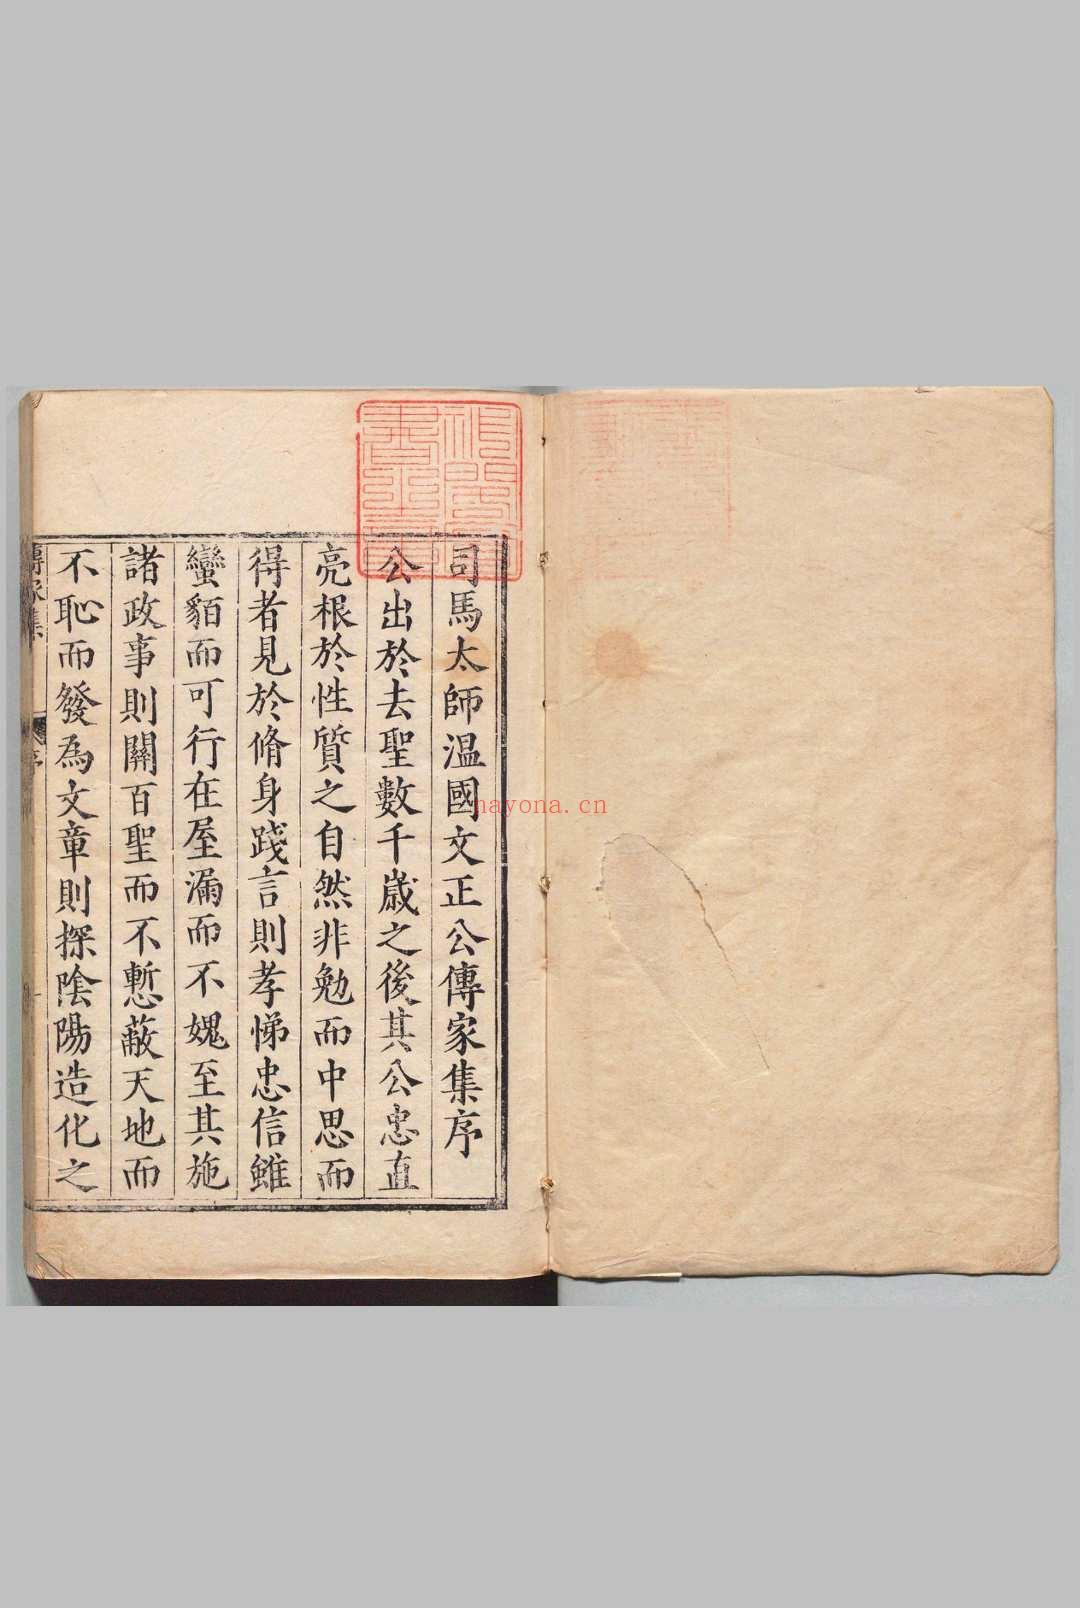 司馬太師温國文正公傳家集序
公出於去聖數千歳之後其公忠直
亮根於性質之自然非勉而中思而
得者見於脩身踐言則孝悌忠信雖
蠻貊而可行在屋漏而不媿至其施
諸政事則關百聖而不慙蔽天地而
不恥而發為文章則探陰陽造化之
傳家集
序
nayona.cn